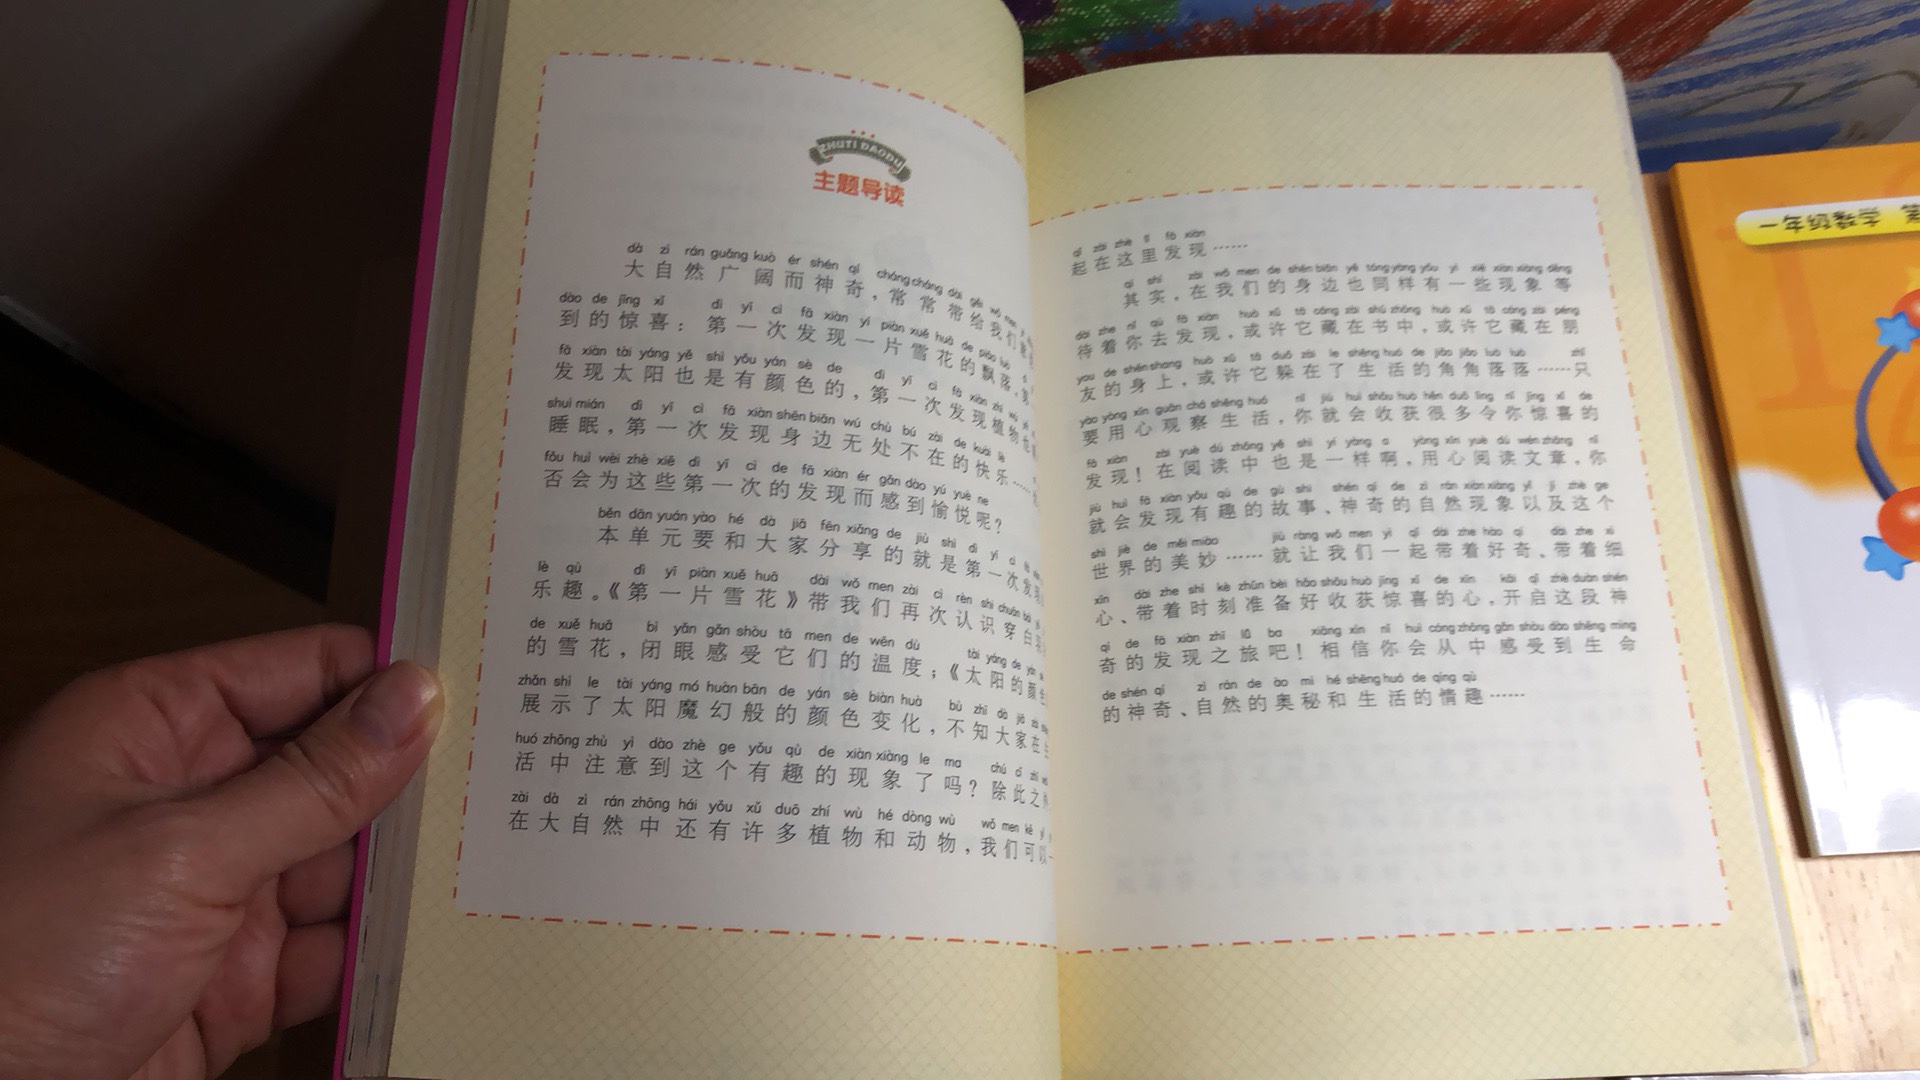 ZHUTI DAODU
主题导读
dà zì rán guǎng kuò ér shén qí cháng cháng dài gěi wǒ men
大自然广阔而神奇，常常带给我们
dào de jīng xǐ dì yī cì fā xiàn yí piàn xuě huā de piāo luò
到的惊喜：第一次发现一片雪花的飘落，第
fā xiàn tài yáng yě shì yǒu yán sè de dì yī cì fā xiàn zhí wù
发现太阳也是有颜色的，第一次发现植物也
shuì mián dì yī cì fā xiàn shēn biān wú chù bú zài de kuài lè
睡眠，第一次发现身边无处不在的快乐……
fǒu huì wèi zhè xiē dì yī cì de fā xiàn ér gǎn dào yú yuè ne
否会为这些第一次的发现而感到愉悦呢？
běn dān yuán yào hé dà jiā fēn xiǎng de jiù shì dì yī cì
本单元要和大家分享的就是第一次发现
lè qù dì yī piàn xuě huā dài wǒ men zài cì rèn shi chuān bái
乐趣。《第一片雪花》带我们再次认识穿白
de xuě huā bì yǎn gǎn shòu tā men de wēn dù tài yáng de
的雪花，闭眼感受它们的温度；《太阳的颜色
zhǎn shì le tài yáng mó huàn bān de yán sè biàn huà bù zhī dà jiā
展示了太阳魔幻般的颜色变化，不知大家在
huó zhōng zhù yì dào zhè ge yǒu qù de xiàn xiàng le ma chú cǐ zhī
活中注意到这个有趣的现象了吗？除此之
zài dà zì rán zhōng hái yǒu xǔ duō zhí wù hé dòng wù wǒ men kě
在大自然中还有许多植物和动物，我们可以一
qǐ zài zhè lǐ fā xiàn
起在这里发现……
qí shí zài wǒ men de shēn biān yě tóng yàng yǒu yì xiē xiàn xiàng děng
其实，在我们的身边也同样有一些现象等
dài zhe nǐ qù fā xiàn huò xǔ tā cáng zài shū zhōng huò xǔ tā cáng zài péng
待着你去发现，或许它藏在书中，或许它藏在朋
you de shēn shang huò xǔ tā duǒ zài le shēng huó de jiǎo jiǎo luò luò zhǐ
友的身上，或许它躲在了生活的角角落落……只
yào yòng xīn guān chá shēng huó nǐ jiù huì shōu huò hěn duō lìng nǐ jīng xǐ de
要用心观察生活，你就会收获很多令你惊喜的
fā xiàn zài yuè dú zhōng yě shì yí yàng a yòng xīn yuè dú wén zhāng nǐ
发现！在阅读中也是一样啊，用心阅读文章，你
jiù huì fā xiàn yǒu qù de gù shi shén qí de zì rán xiàn xiàng yǐ jí zhè ge
就会发现有趣的故事、神奇的自然现象以及这个
shì jiè de měi miào jiù ràng wǒ men yì qǐ dài zhe hào qí dài zhe xì
世界的美妙……就让我们一起带着好奇、带着细
xīn dài zhe shí kè zhǔn bèi hǎo shōu huò jīng xǐ de xīn kāi qǐ zhè duàn shén
心、带着时刻准备好收获惊喜的心，开启这段神
qí de fā xiàn zhī lǚ ba xiāng xìn nǐ huì cóng zhōng gǎn shòu dào shēng mìng
奇的发现之旅吧！相信你会从中感受到生命
de shén qí zì rán de ào mì hé shēng huó de qíng qù
的神奇、自然的奥秘和生活的情趣……
一年级数学